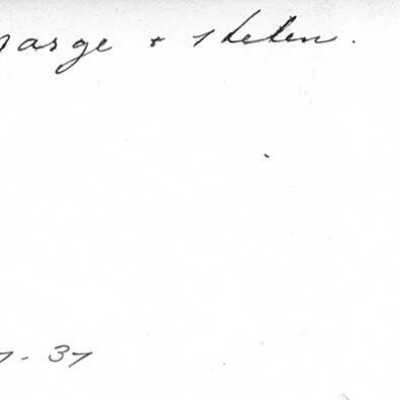 Marge + Helen.
7-37